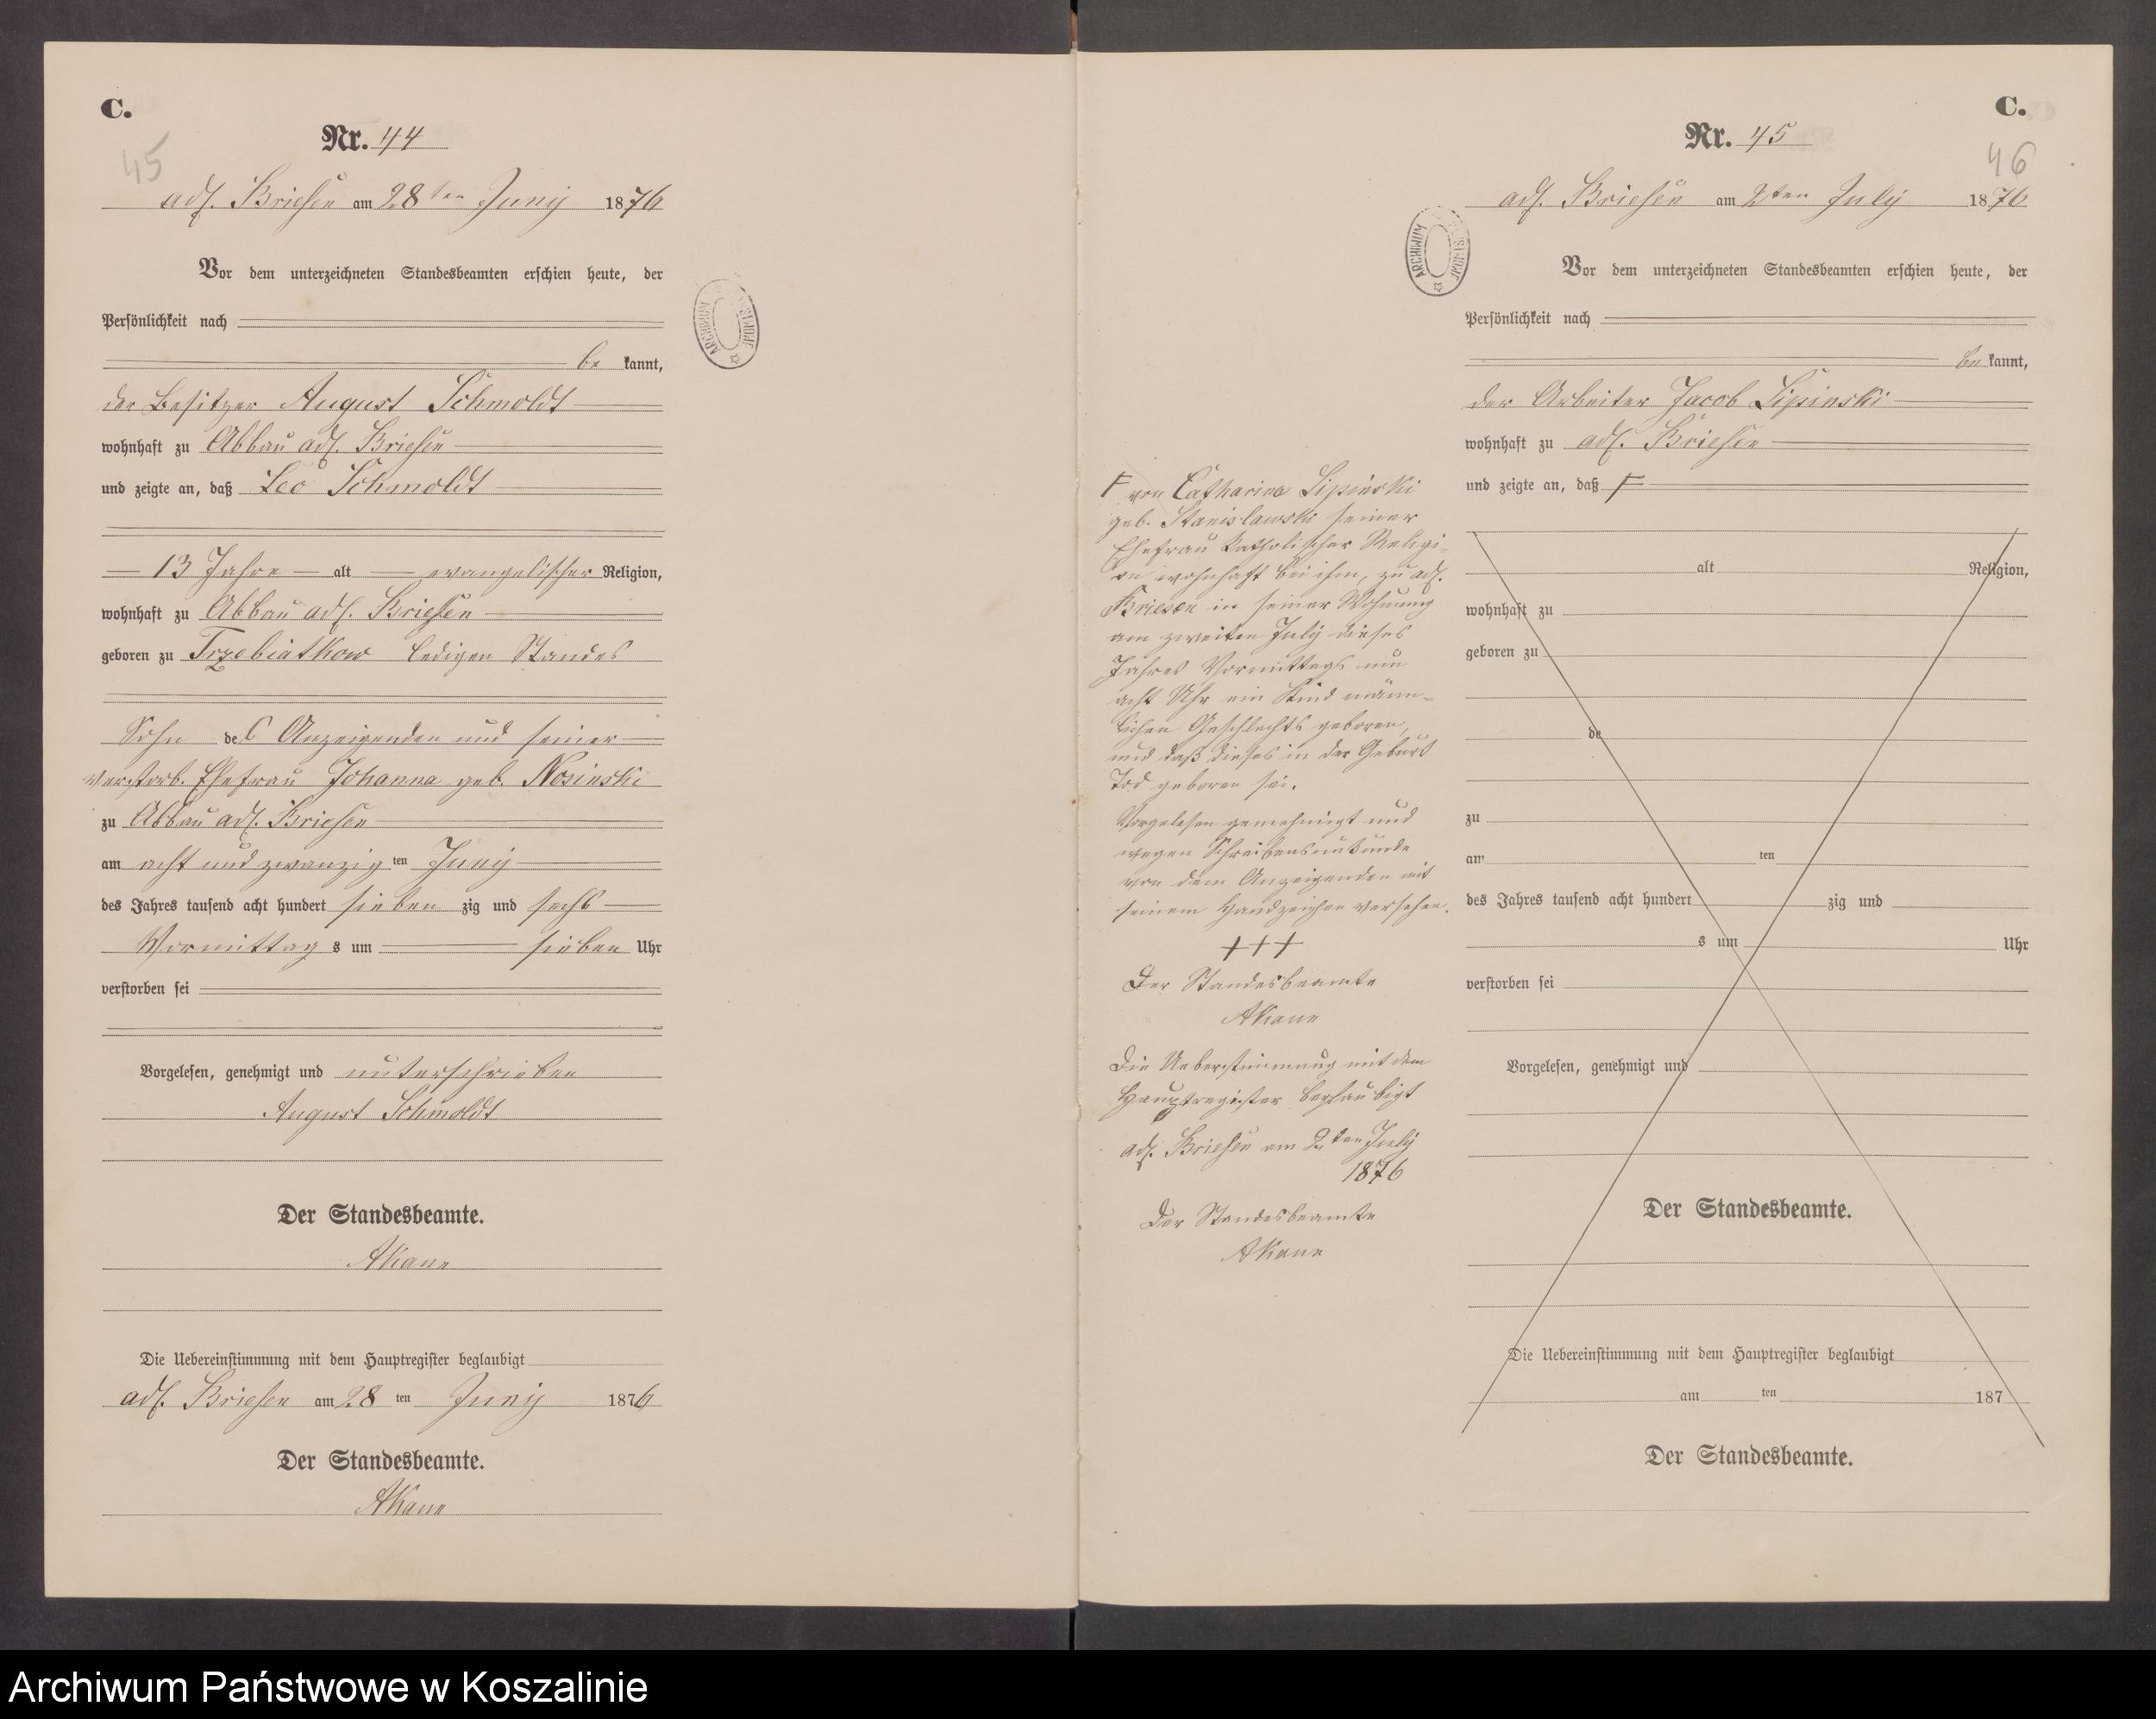 C.
Nr. 44
45
adl. Briesen am 28ten Juny 1876
Vor dem unterzeichneten Standesbeamten erschien heute, der
Persönlichkeit nach
be kannt,
der Besitzer August Schmoldt
wohnhaft zu Abbau adl. Briesen
und zeigte an, daß Leo Schmoldt
13 Jahre alt evangelischer Religion,
wohnhaft zu Abbau adl. Briesen
geboren zu Trzebiatkow ledigen Standes
Sohn des Anzeigenden und seiner
verstorb. Ehefrau Johanna geb. Nosinski
zu Abbau adl. Briesen
am acht und zwanzig ten Juny
des Jahres tausend acht hundert sieben zig und sechs
Vormittag s um sieben Uhr
verstorben sei
Vorgelesen, genehmigt und unterschrieben
August Schmoldt
Der Standesbeamte.
AKane
Die Uebereinstimmung mit dem Hauptregister beglaubigt
adl. Briesen am 28 ten Juny 1876
Der Standesbeamte.
AKane
ARCHIWUM
C.
Nr. 45
46
adl. Briesen am 2ten July 1876
Vor dem unterzeichneten Standesbeamten erschien heute, der
Persönlichkeit nach
be kannt,
der Arbeiter Jacob Lipinski
wohnhaft zu adl. Briesen
und zeigte an, daß F
alt Religion,
wohnhaft zu
geboren zu
de
zu
am ten
des Jahres tausend acht hundert zig und
s um Uhr
verstorben sei
Vorgelesen, genehmigt und
Der Standesbeamte.
Die Uebereinstimmung mit dem Hauptregister beglaubigt
am ten 187
Der Standesbeamte.
ARCHIWUM
F von Catharina Lipinski
geb. Stanislawski seiner
Ehefrau katholischer Religi-
on wohnhaft bei ihm, zu adl.
Briesen in seiner Wohnung
am zweiten July dieses
Jahres Vormittags um
acht Uhr ein Kind männ-
lichen Geschlechts geboren,
und daß dieses in der Geburt
Tod geboren sei.
Vorgelesen genehmigt und
wegen Schreibensunkunde
von dem Anzeigenden mit
seinem Handzeichen versehen.
+++
Der Standesbeamte
AKane
Die Ueberstimmung mit dem
Hauptregister beglaubigt
adl. Briesen am 2ten July
1876
Der Standesbeamte
AKane
Archiwum Państwowe w Koszalinie